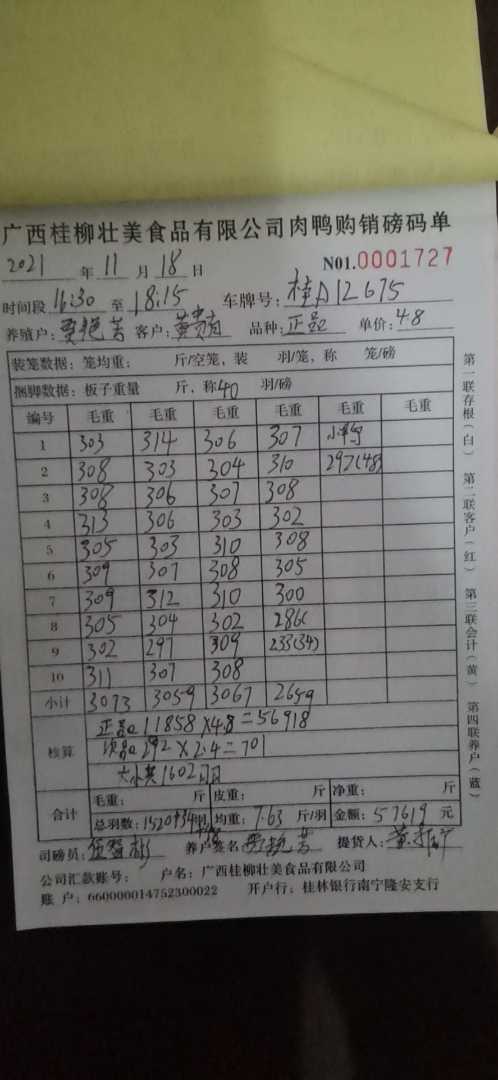 广西桂柳壮美食品有限公司肉鸭购销磅码单
2021 年 11 月 18 日 N01.0001727
时间段 16:30 至 18:15 车牌号: 桂A12675
养殖户: 客户: 品种: 正品 单价: 4.8
装笼数据: 笼均重: 斤/空笼, 装 羽/笼, 称 笼/磅
捆脚数据: 板子重量 斤, 称40 羽/磅
编号 毛重 毛重 毛重 毛重 毛重 毛重
1 303 314 306 307
2 308 303 304 310 292(48)
3 308 306 307 308
4 313 306 303 302
5 305 303 310 308
6 309 307 308 305
7 309 312 310 300
8 305 304 302 286
9 302 297 309 233(34)
10 311 307 308
小计 3073 3059 3067 2659
核算
正品 11858×4.8=56918
次品 292×2.4=701
大小共1602羽
合计
毛重: 斤 皮重: 斤 净重: 斤
总羽数: 1520+34 均重: 7.63 斤/羽 金额: 57619 元
司磅员: 养户签名: 提货人:
公司汇款账号: 户名: 广西桂柳壮美食品有限公司
账 户: 660000014752300022 开户行: 桂林银行南宁隆安支行
第一联存根(白) 第二联客户(红) 第三联会计(黄) 第四联养户(蓝)